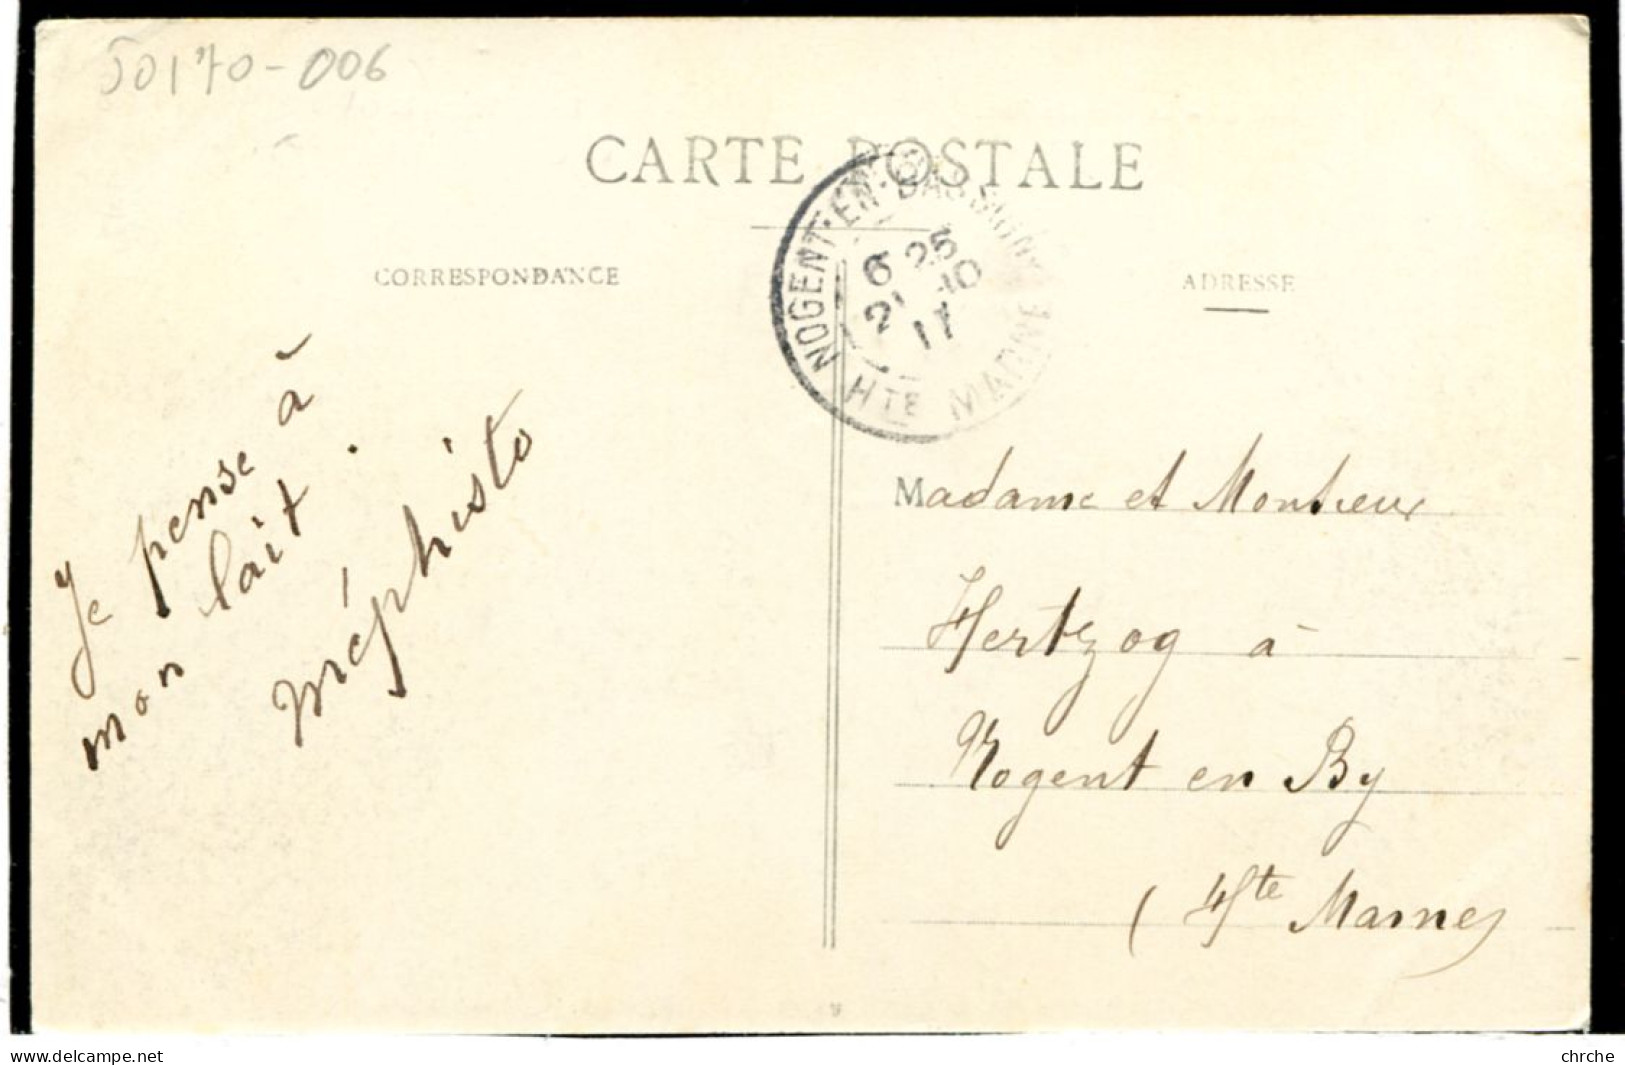 50170-006
CARTE POSTALE
CORRESPONDANCE
ADRESSE
NOGENT-EN-BASSIGNY
6 25
21 -10
11
HTE MARNE
Je pense à
mon lait.
Méphisto
Madame et Monsieur
Hertzog à
Nogent en By
(Hte Marne)
www.delcampe.net
chrche